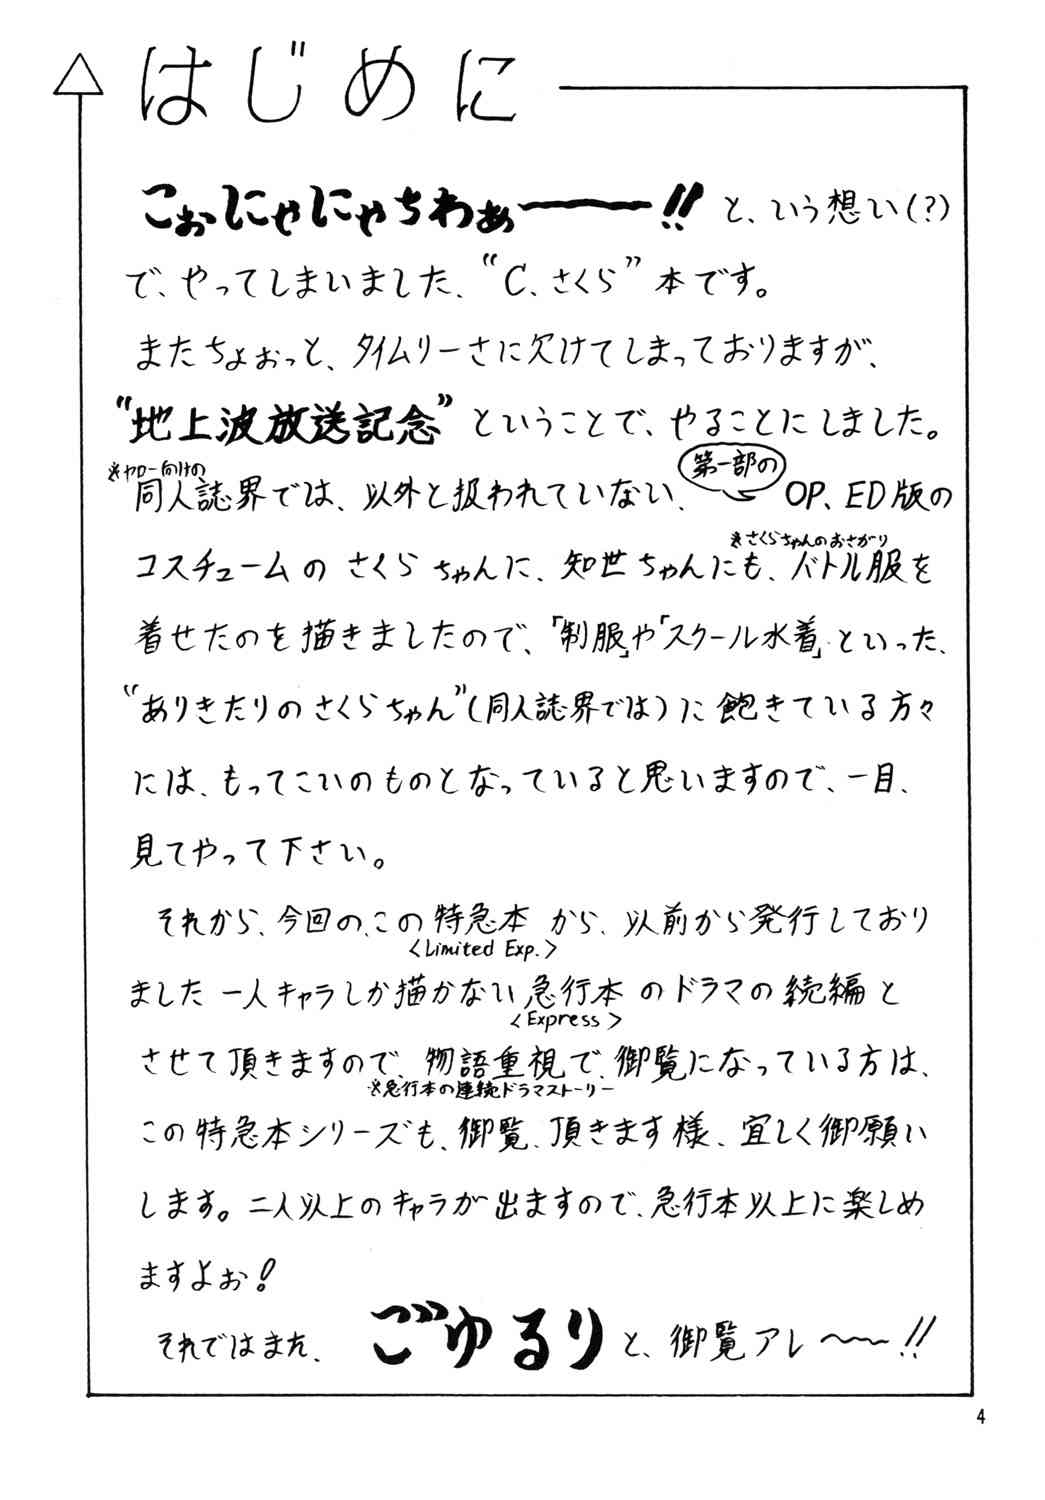 はじめに
こぉにゃにゃちわぁーーー!! と、いう想い(?)
で、やってしまいました、“C、さくら”本です。
またちょぉっと、タイムリーさに欠けてしまっておりますが、
“地上波放送記念”ということで、やることにしました。
※ヤロー向けの
第一部の
同人誌界では、以外と扱われていない、OP、ED版の
※さくらちゃんのおさがり
コスチュームのさくらちゃんに、知世ちゃんにも、バトル服を
着せたのを描きましたので、「制服」や「スクール水着」といった、
“ありきたりのさくらちゃん”(同人誌界では)に飽きている方々
には、もってこいのものとなっていると思いますので、一目、
見てやって下さい。
それから、今回の、この特急本から、以前から発行しており
<Limited Exp.>
ました一人キャラしか描かない急行本のドラマの続編と
<Express>
させて頂きますので、物語重視で、御覧になっている方は、
※急行本の連続ドラマストーリー
この特急本シリーズも、御覧、頂きます様、宜しく御願い
します。二人以上のキャラが出ますので、急行本以上に楽しめ
ますよぉ!
それではまた、ごゆるりと、御覧アレ〜〜!!
4